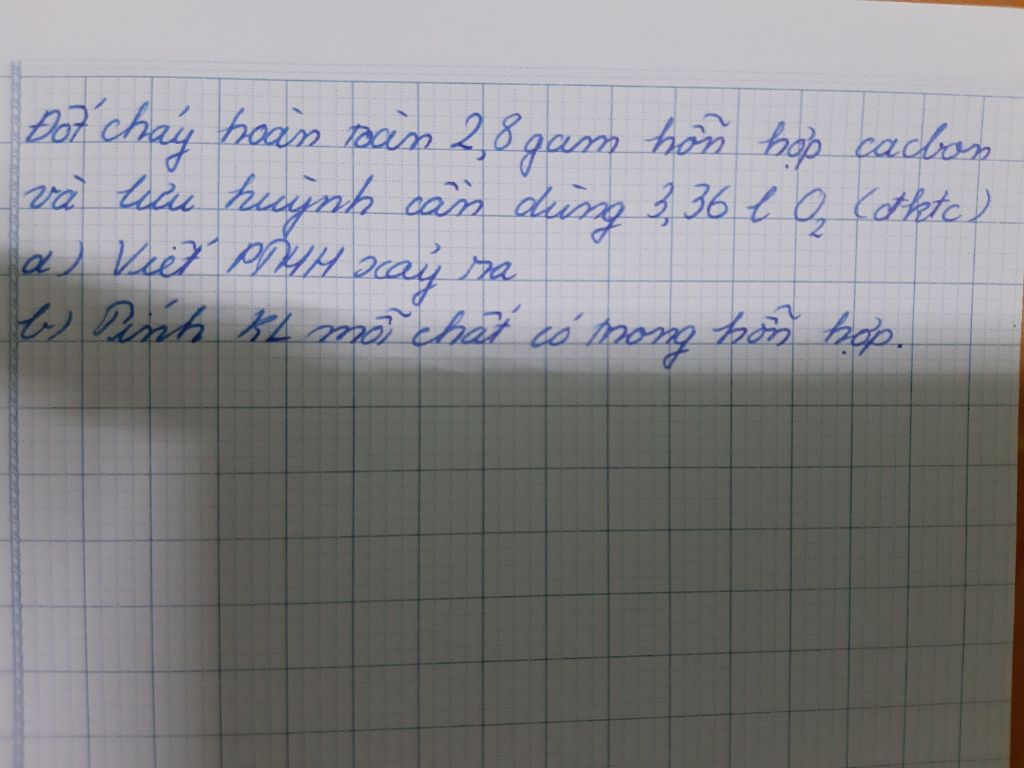 Đốt cháy hoàn toàn 2,8 gam hỗn hợp cacbon
và lưu huỳnh cần dùng 3,36 l O₂ (đktc)
a) Viết PTHH xảy ra
b) Tính KL mỗi chất có trong hỗn hợp.